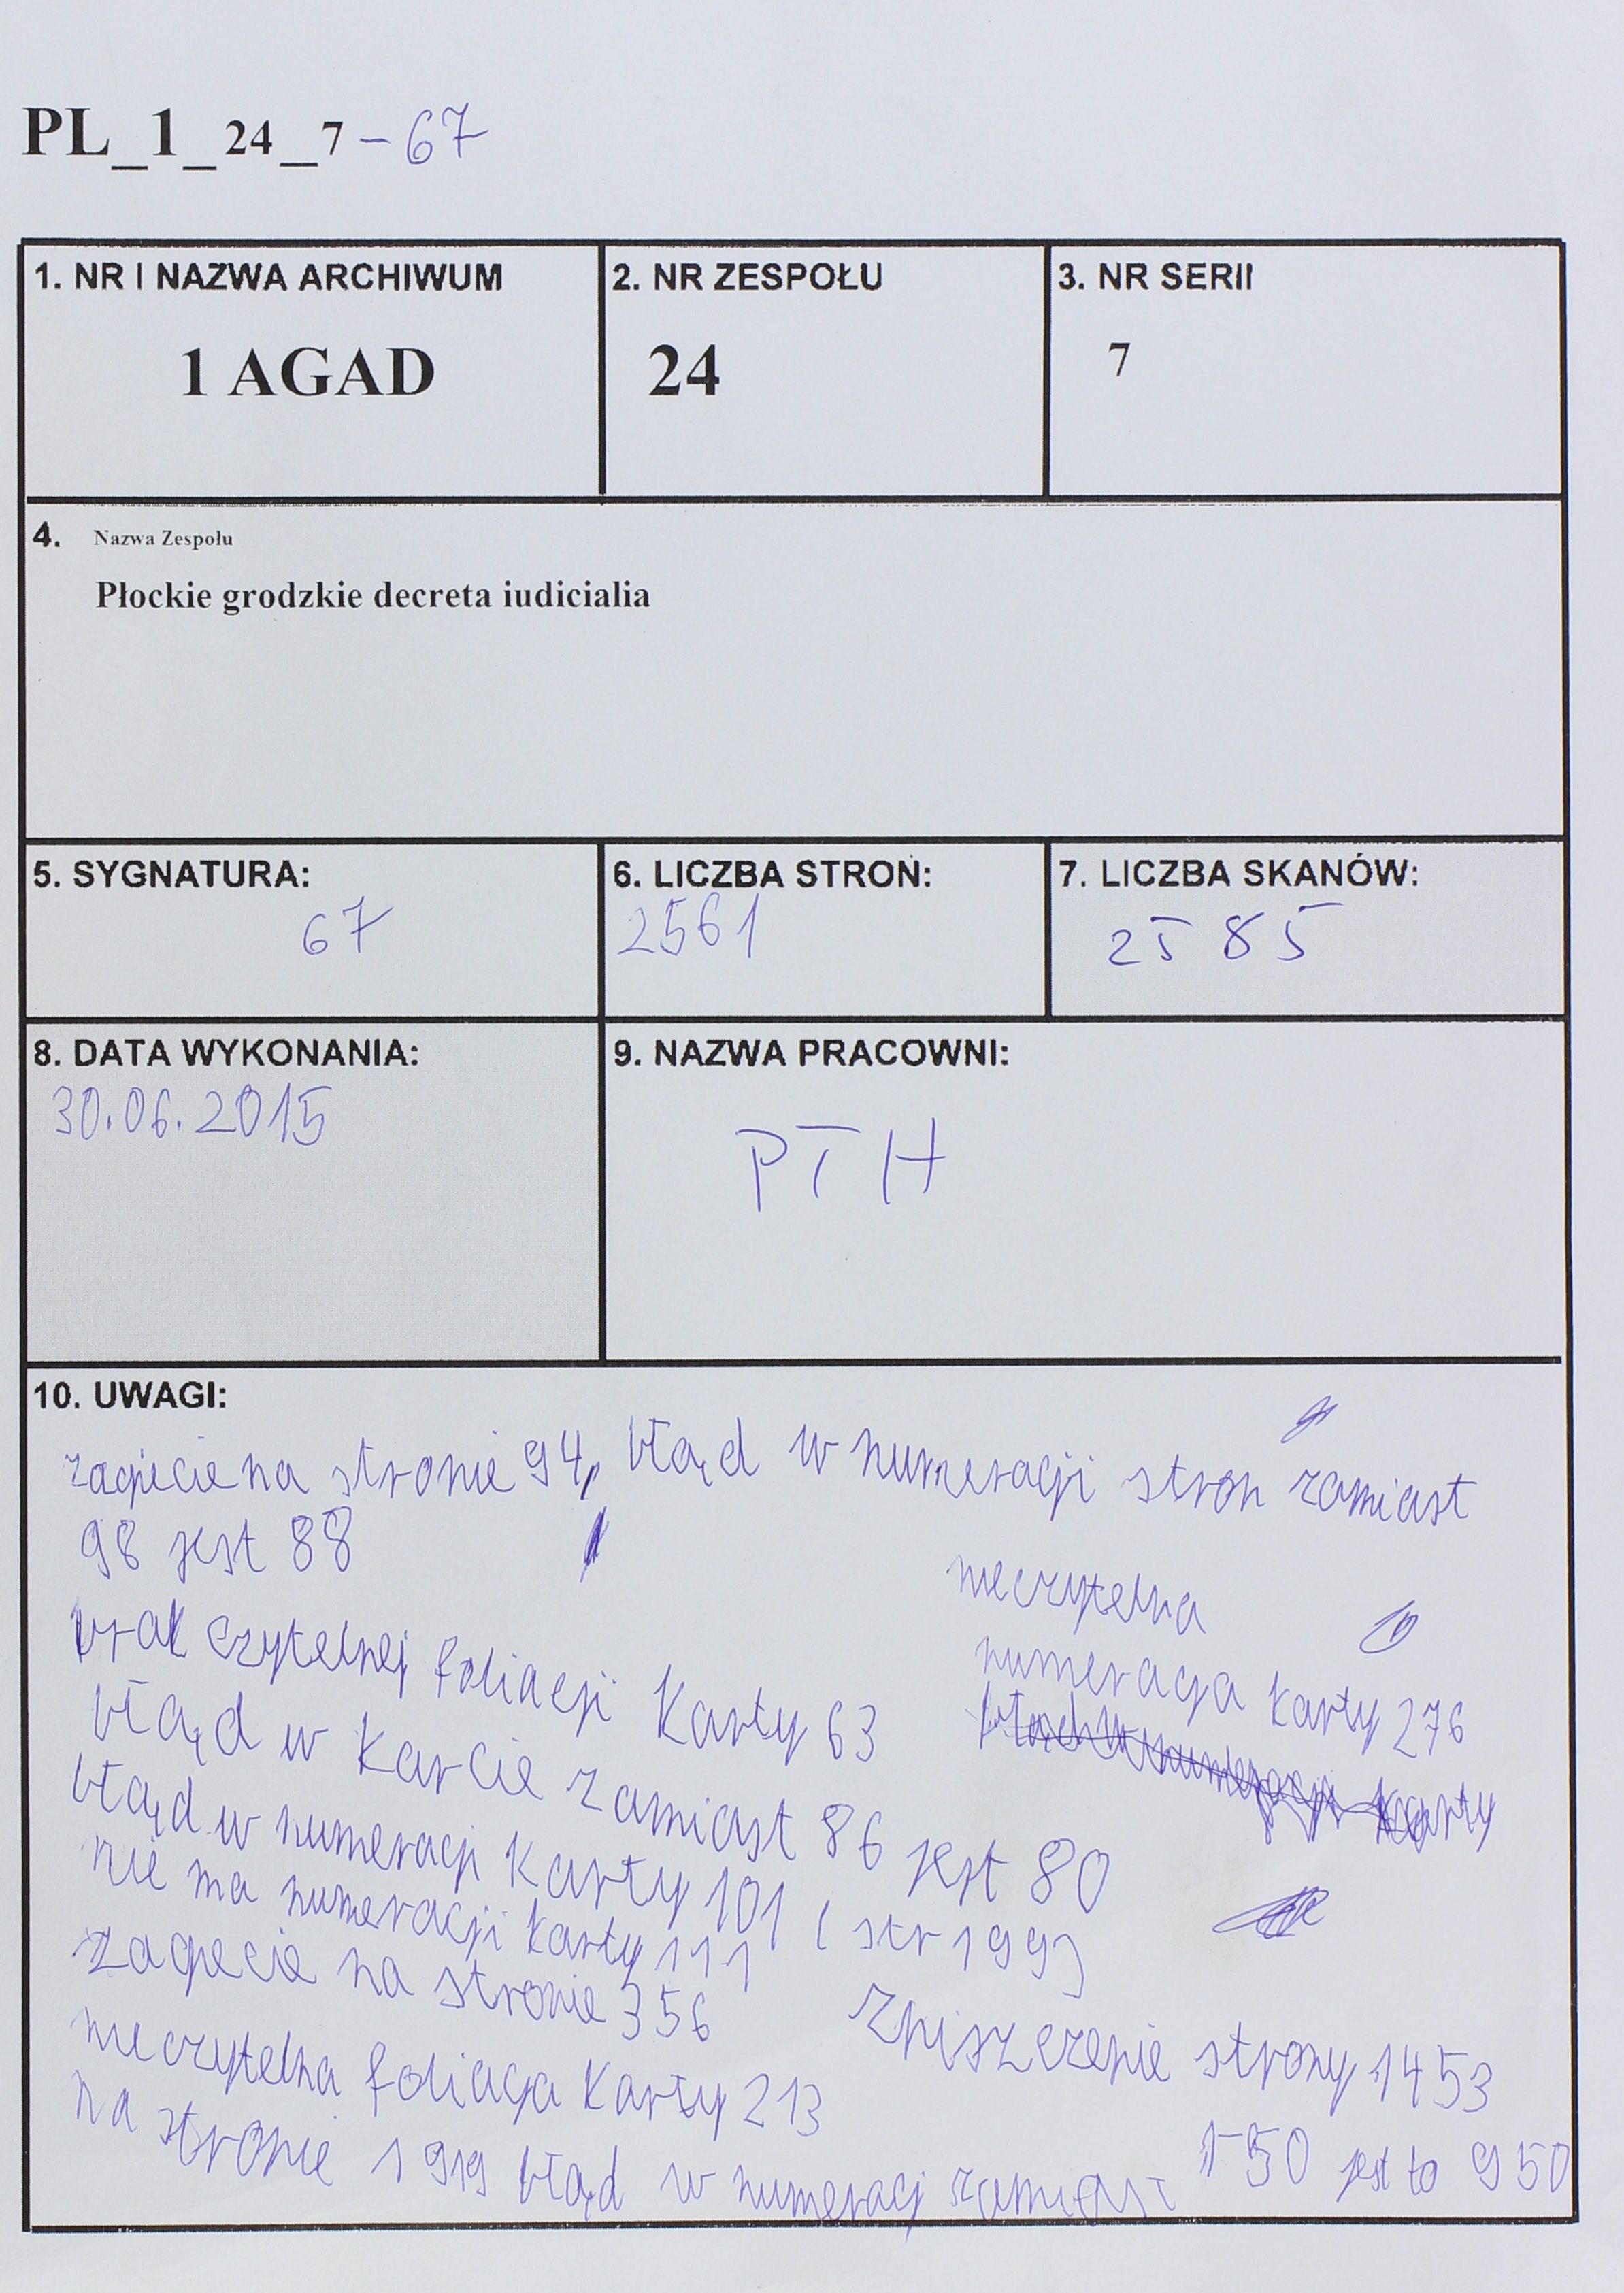 PL_1_24_7-67
1. NR I NAZWA ARCHIWUM
1 AGAD
2. NR ZESPOŁU
24
3. NR SERII
7
4. Nazwa Zespołu
Płockie grodzkie decreta iudicialia
5. SYGNATURA:
67
6. LICZBA STRON:
2561
7. LICZBA SKANÓW:
2585
8. DATA WYKONANIA:
30.06.2015
9. NAZWA PRACOWNI:
PTH
10. UWAGI:
zagięcie na stronie 94, błąd w numeracji stron zamiast
98 jest 88
brak czytelnej foliacji Karty 63
błąd w karcie zamiast 86 jest 80
błąd w numeracji Karty 101 (str 199)
nie ma numeracji karty 111
zagięcie na stronie 356
nieczytelna foliacja Karty 213
na stronie 1919 błąd w numeracj zamiast 50 jest to 950
nieczytelna
numeracja karty 276
karty
zniszczenie strony 1453